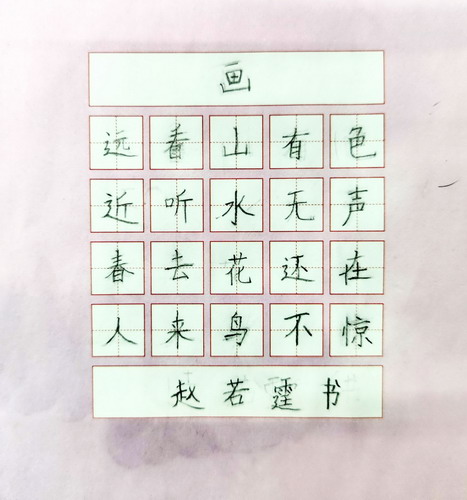 画
远看山有色
近听水无声
春去花还在
人来鸟不惊
赵若霆书